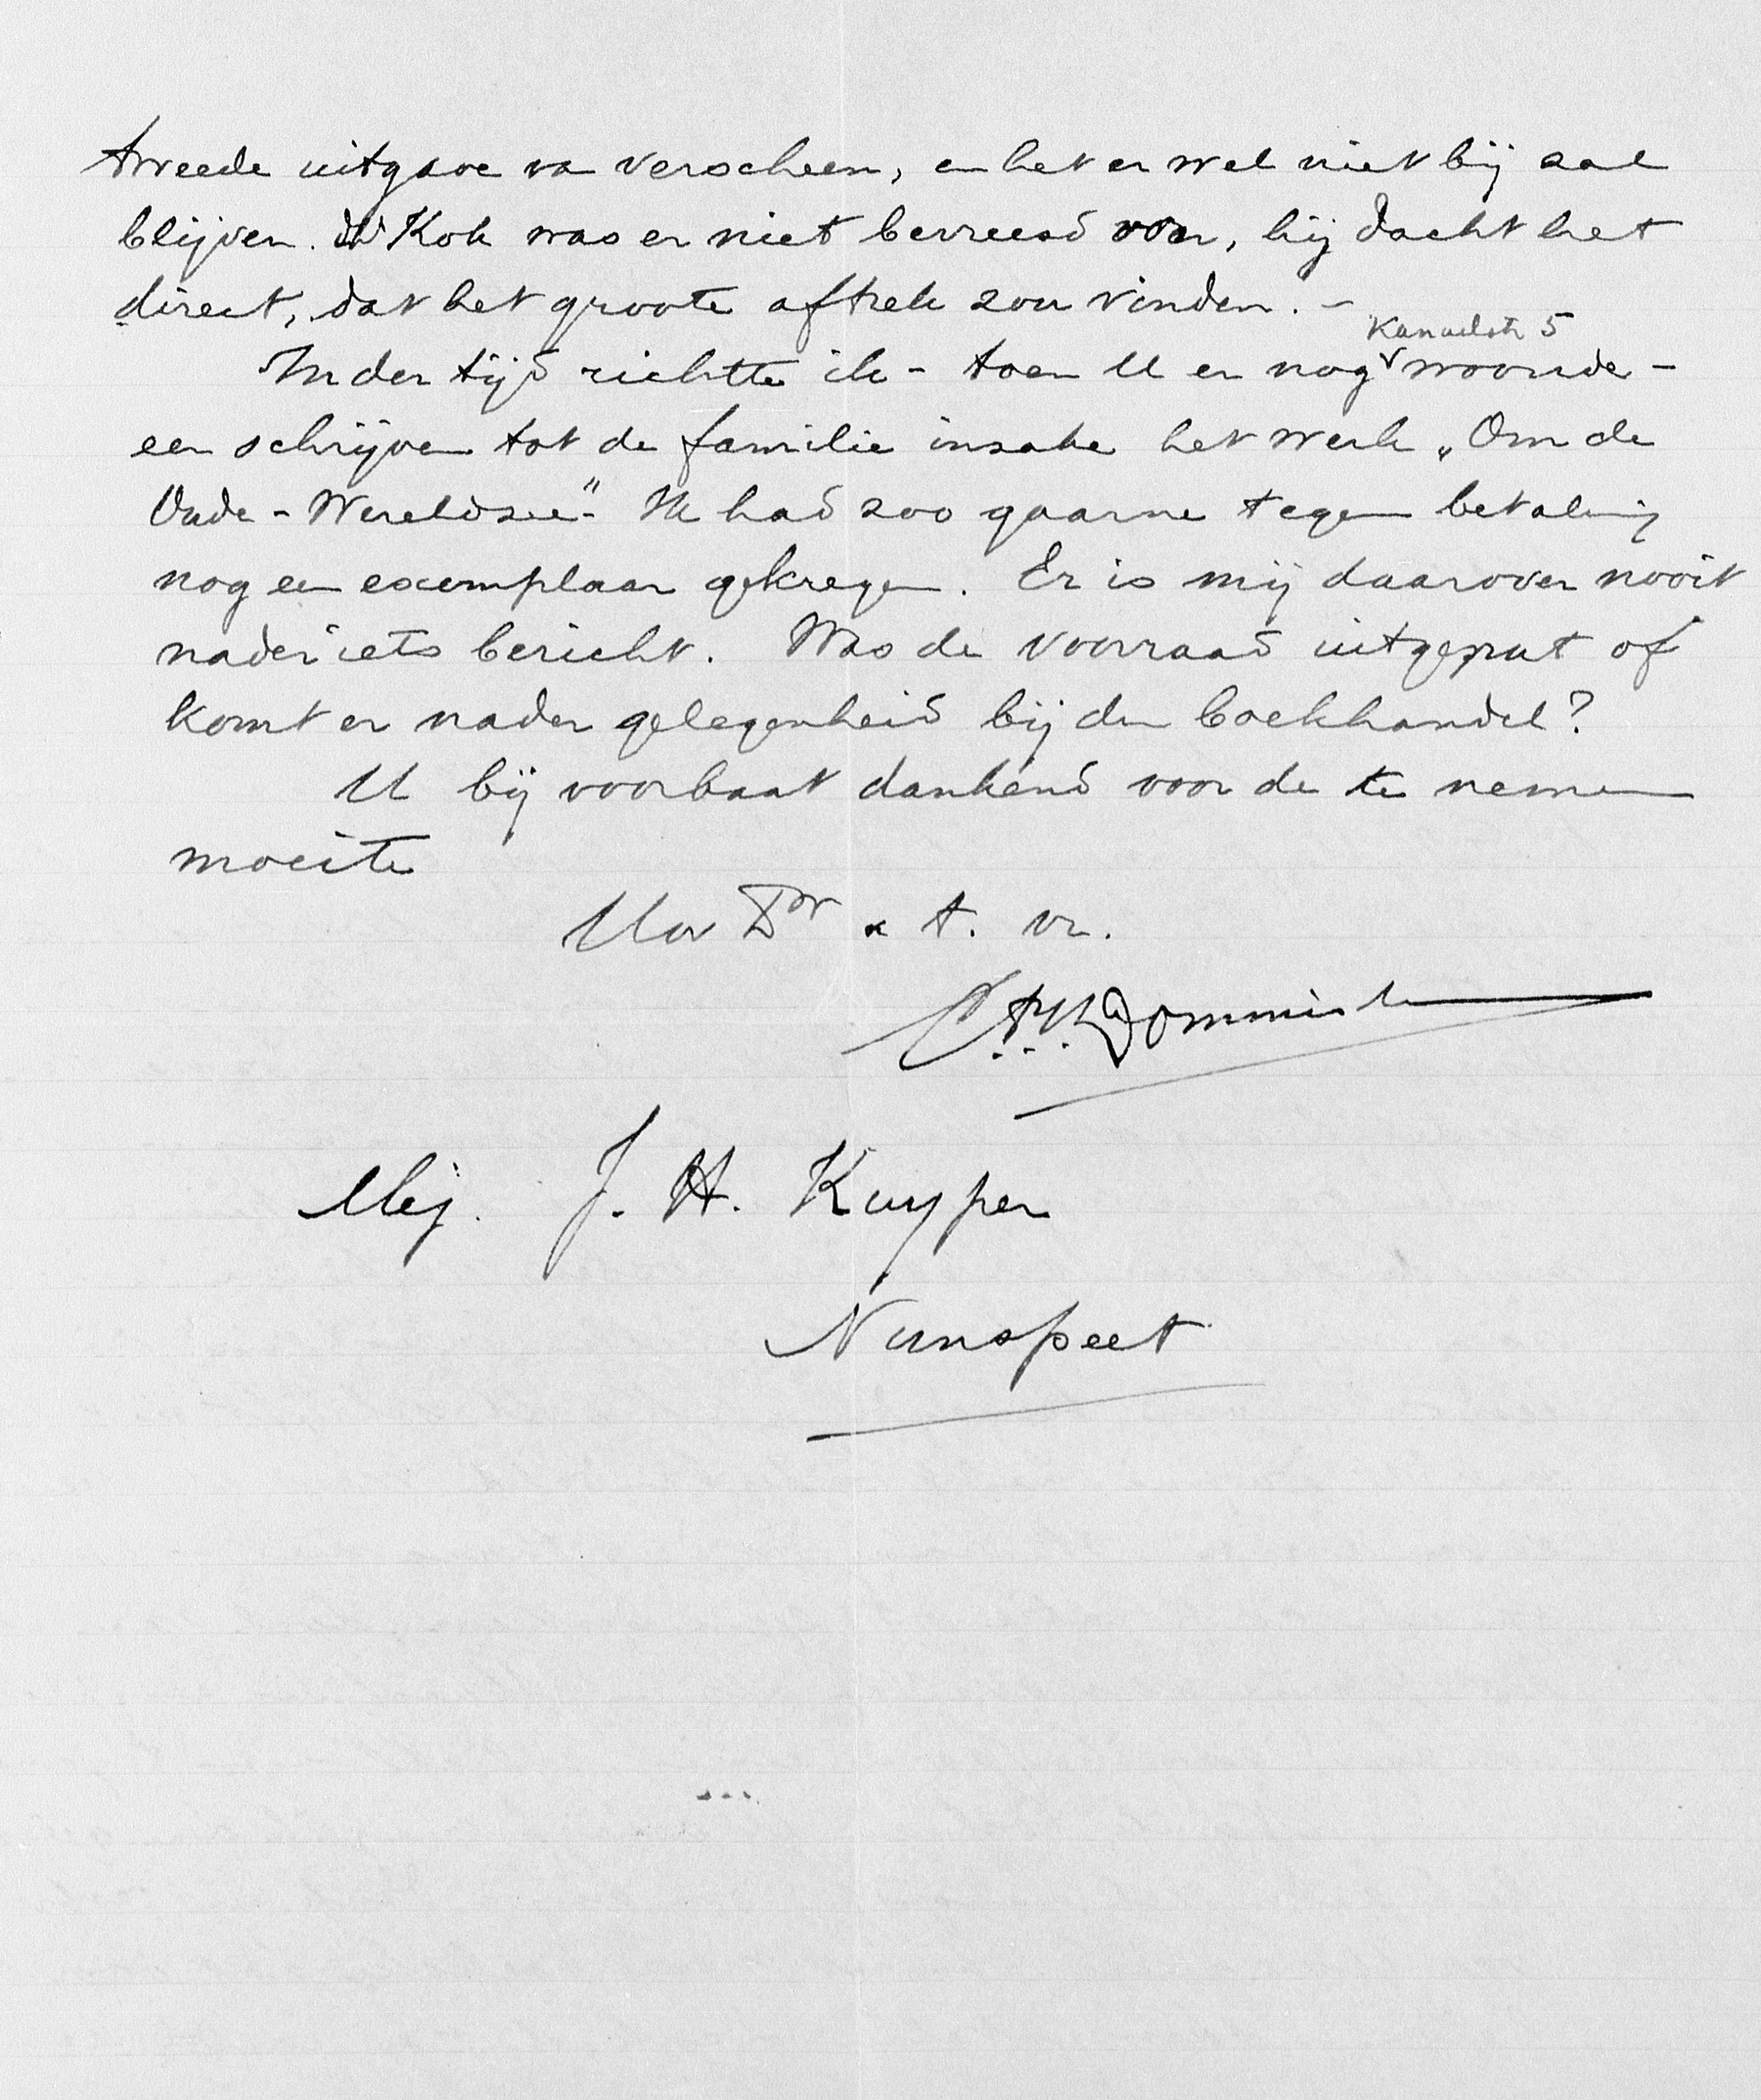 tweede uitgave va verscheen, en het er wel niet bij zal
blijven. dhr Kok was er niet bevreesd voor, hij dacht het
direct, dat het groote aftrek zou vinden. –
Kanaalstr 5
In der tijd richtte ik - toen U er nog woonde -
een schrijven tot de familie inzake het werk „Om de
Oude - Wereldzee" - Ik had zoo gaarne tegen betaling
nog een exemplaar gekregen. Er is mij daarover nooit
nader iets bericht. Was de voorraad uitgeput of
komt er nader gelegenheid bij den boekhandel?
U bij voorbaat dankend voor de te nemen
moeite
Uw Dr & t. vr.
Mej. J. H. Kuyper
Nunspeet